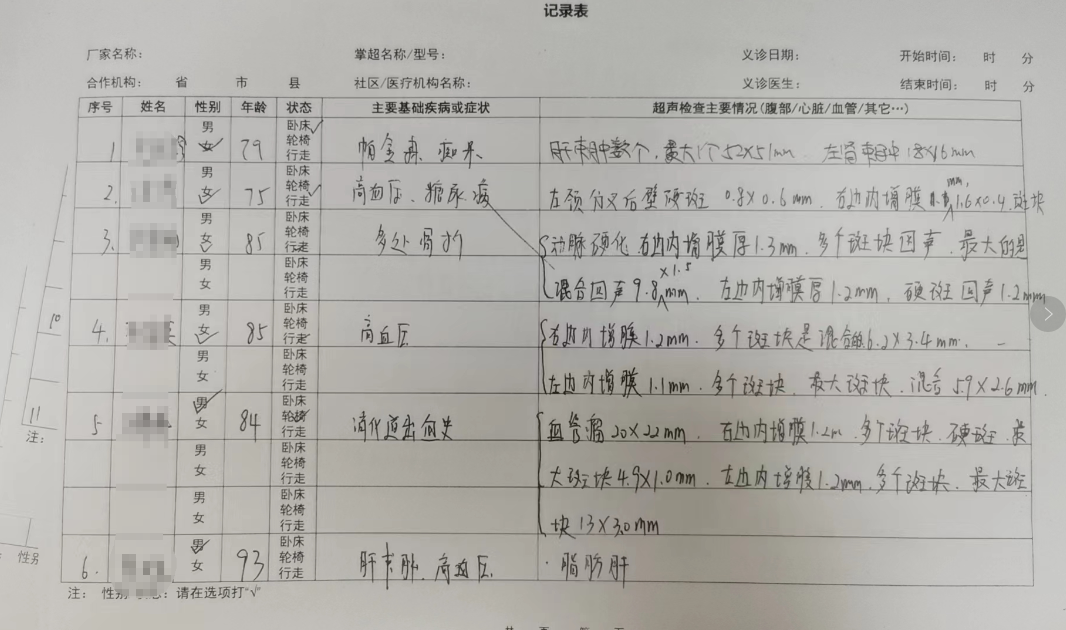 记录表
厂家名称： 掌超名称/型号： 义诊日期： 开始时间： 时 分
合作机构： 省 市 县 社区/医疗机构名称： 义诊医生： 结束时间： 时 分
序号 姓名 性别 年龄 状态 主要基础疾病或症状 超声检查主要情况(腹部/心脏/血管/其它…)
1 男 女✓ 79 卧床✓ 轮椅 行走 帕金森、痴呆 肝束肿数个，最大1个52×51mm 左肾束肿18×16mm
2. 男 女✓ 75 卧床 轮椅✓ 行走 高血压、糖尿病 左颈分叉后壁硬斑 0.8×0.6mm 右边内增膜 1.6×0.4 斑块
mm,
3. 男 女✓ 85 卧床 轮椅 行走✓ 多处骨折 动脉硬化 右边内增膜厚1.3mm，多个斑块回声，最大的是
男 女 卧床 轮椅 行走 混合回声9.8×1.5mm，左边内增膜厚1.2mm，硬斑回声1.2mm
4. 男 女✓ 85 卧床 轮椅 行走✓ 高血压 右边内增膜1.2mm，多个斑块是混合 6.2×3.4mm，
男 女 卧床 轮椅 行走 左边内增膜1.1mm，多个斑块，最大斑块，混合 5.9×2.6mm.
5 男✓ 女 84 卧床 轮椅✓ 行走 消化道出血史 血管瘤20×22mm，右边内增膜1.2m，多个斑块，硬斑，最
男 女 卧床 轮椅 行走 大斑块4.9×1.0mm，左边内增膜1.2mm，多个斑块，最大斑
男 女 卧床 轮椅 行走 块13×3.0mm
6. 男✓ 女 93 卧床 轮椅 行走 肝束肿、高血压 脂肪肝
注： 性别 ：请在选项打"√"
10
11
注：
性别